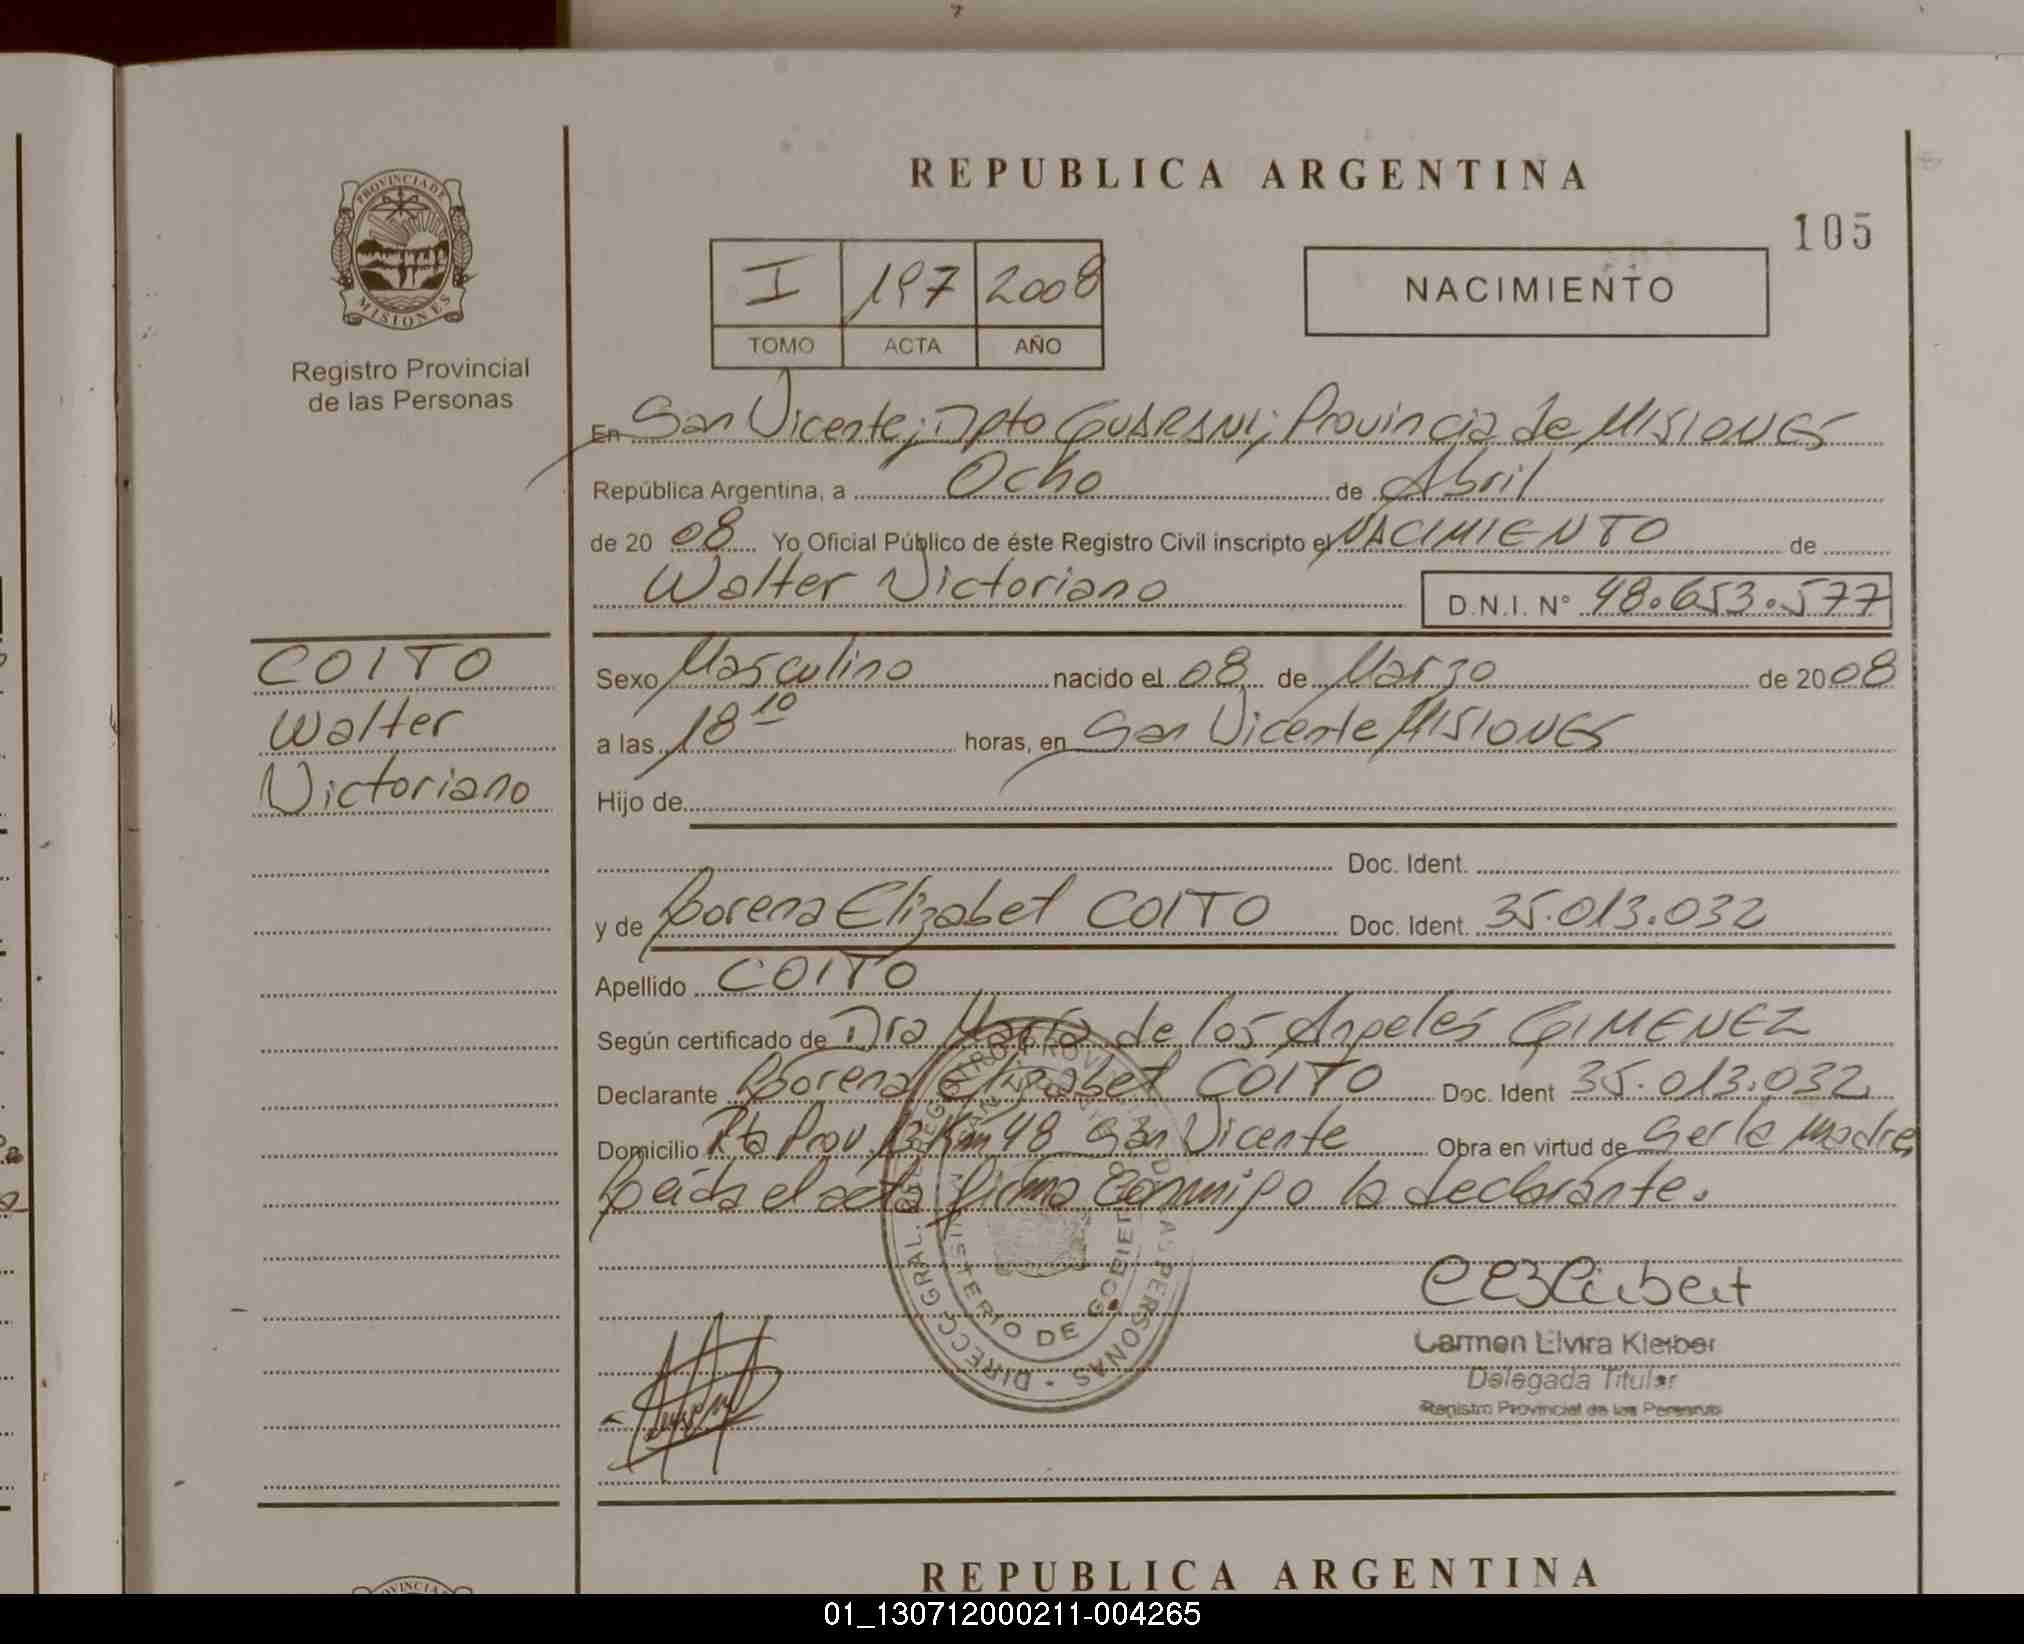 REPUBLICA ARGENTINA
105
I 197 2008
TOMO ACTA AÑO
NACIMIENTO
PROVINCIA DE MISIONES
Registro Provincial
de las Personas
En San Vicente; Dpto GUARANI; Provincia de MISIONES
República Argentina, a Ocho de Abril
de 20 08 Yo Oficial Público de éste Registro Civil inscripto el NACIMIENTO de
Walter Victoriano D.N.I. N° 48.653.577
COITO
Walter
Victoriano
Sexo Masculino nacido el 08 de Marzo de 2008
a las 18 10 horas, en San Vicente MISIONES
Hijo de
Doc. Ident.
y de Lorena Elizabet COITO Doc. Ident. 35.013.032
Apellido COITO
Según certificado de Dra María de los Angeles GIMENEZ
Declarante Lorena Elizabet COITO Doc. Ident 35.013.032
Domicilio Rta Prov 13 Km 48 San Vicente Obra en virtud de Ser la madre
Leida el acta firma conmigo la declarante.
DIRECC. GRAL. DEL REGISTRO PROVINCIAL DE LAS PERSONAS
MINISTERIO DE GOBIERNO
Carmen Elvira Kleiber
Delegada Titular
Registro Provincial de las Personas
REPUBLICA ARGENTINA
01_130712000211-004265